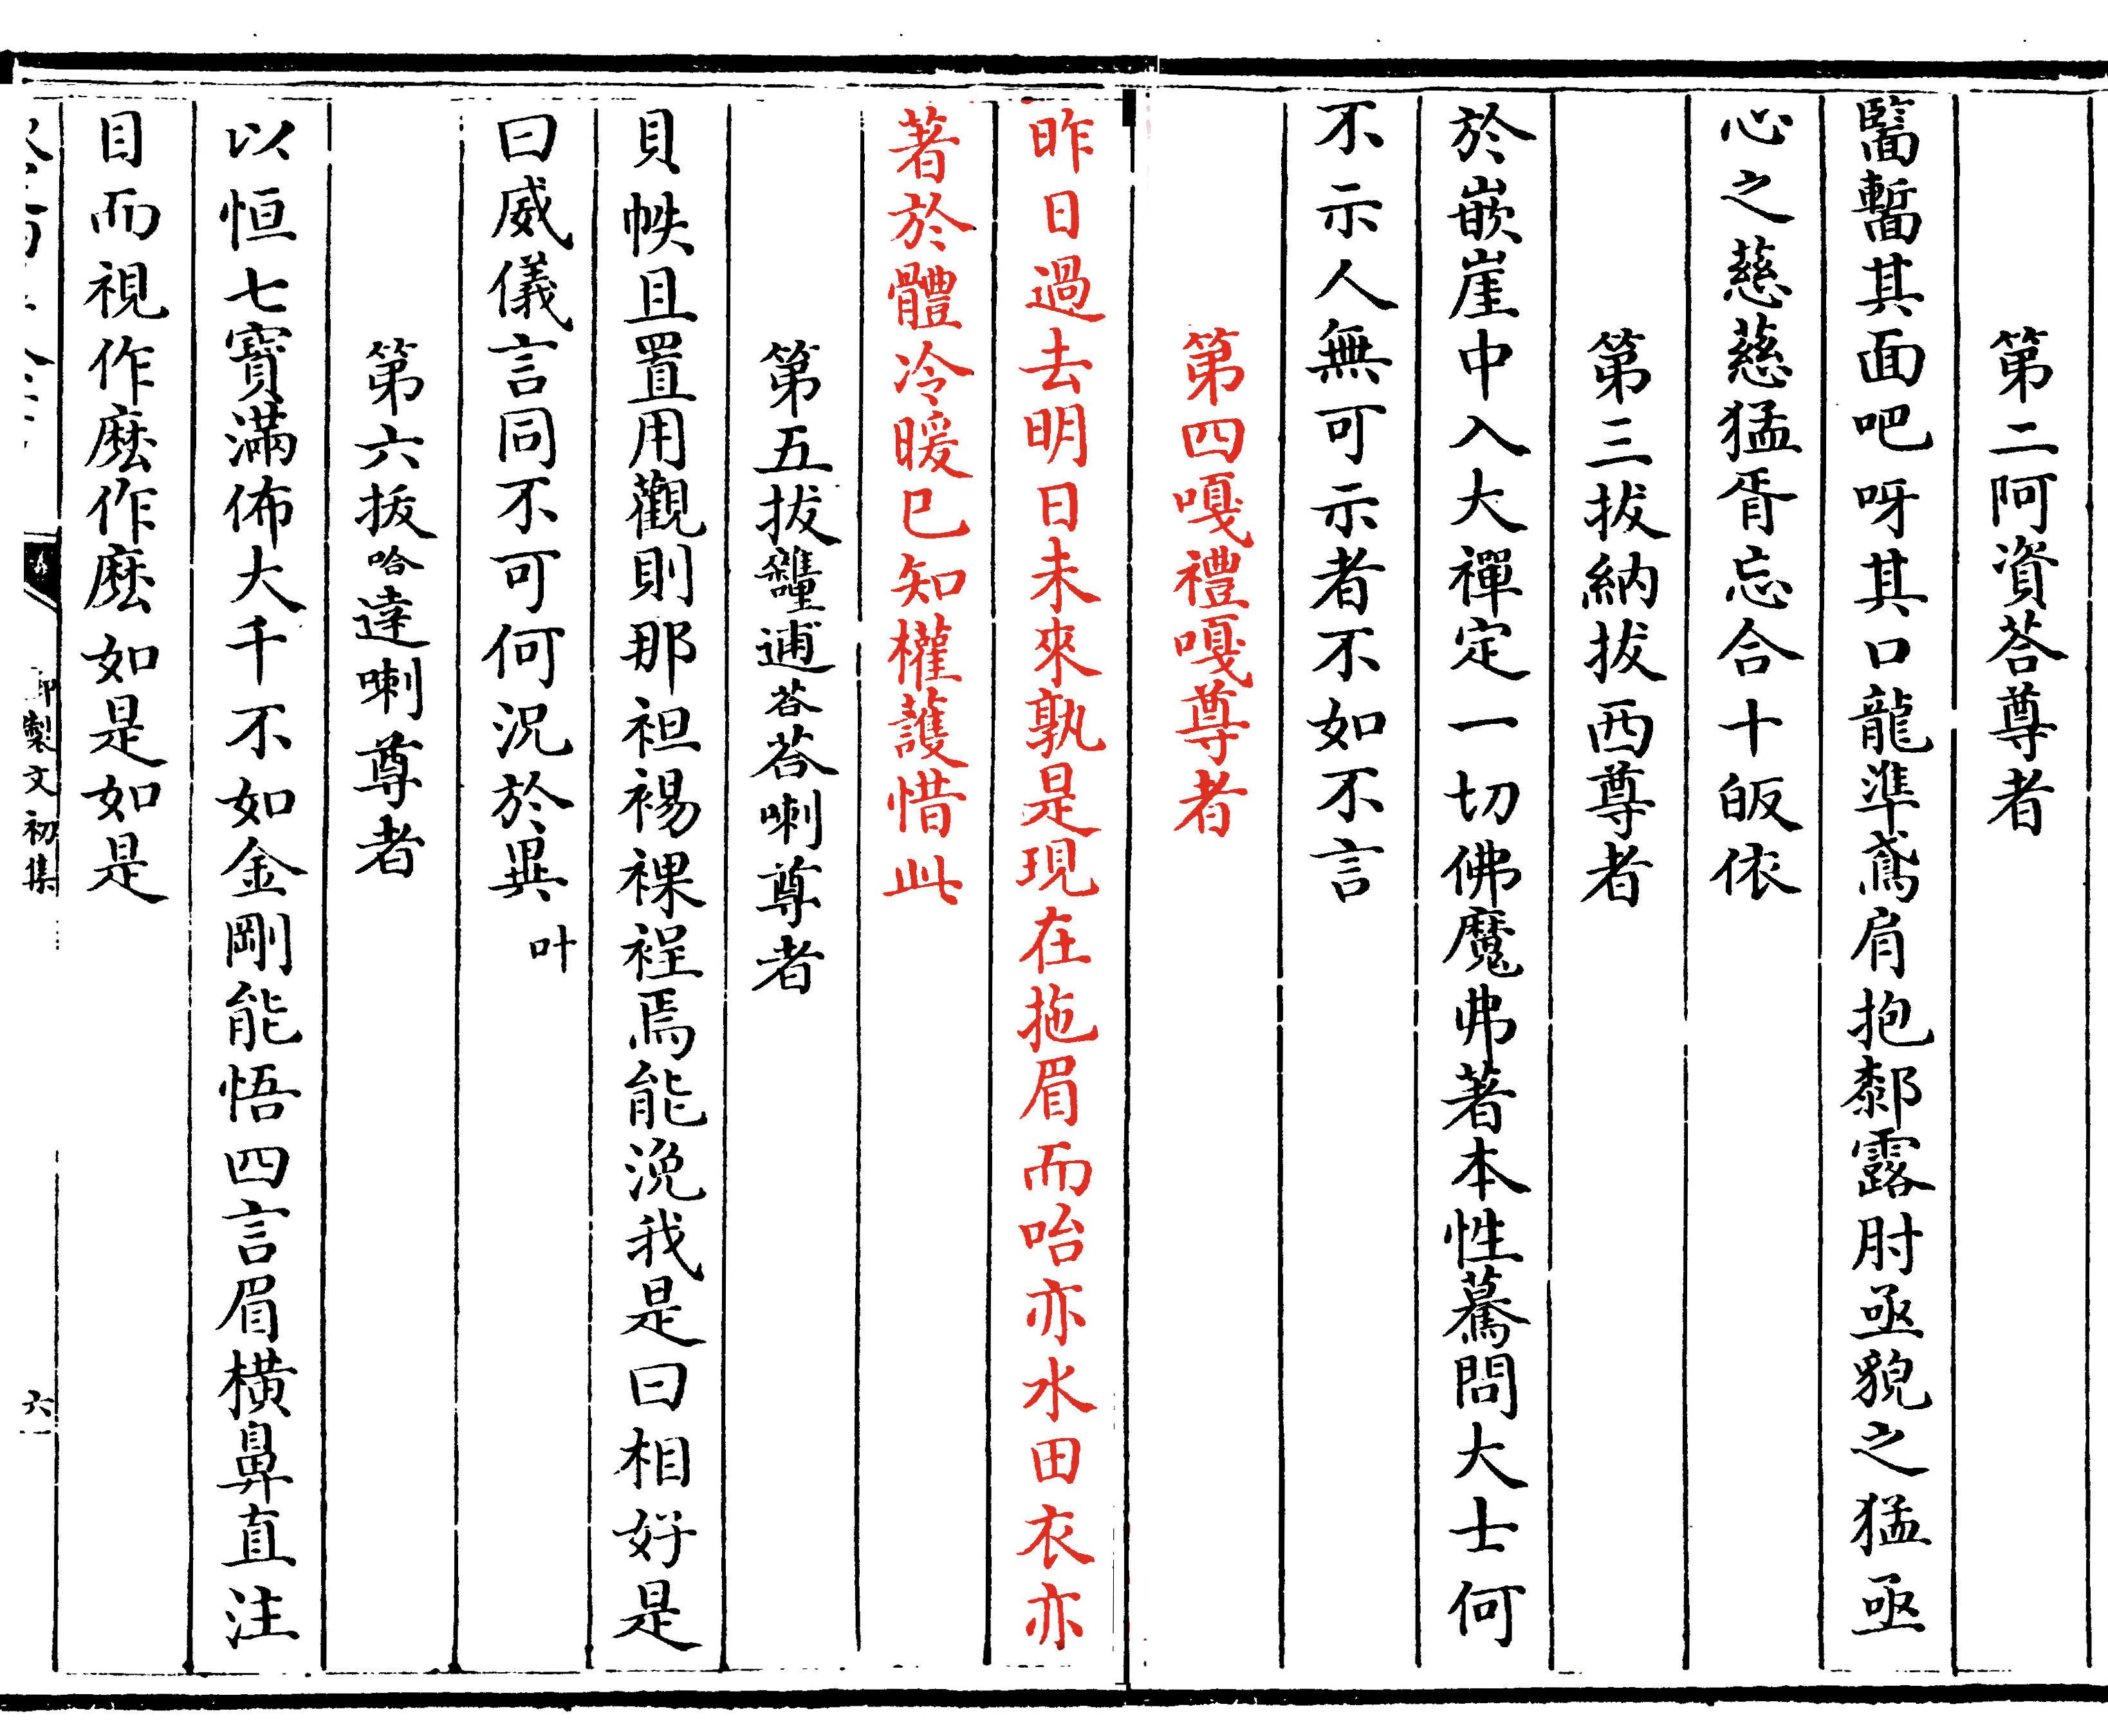 第二阿資荅尊者
毉蹔其面吧呀其口龍準鳶肩抱厀露肘亟貌之猛亟
心之慈慈猛胥忘合十皈依
第三拔納拔西尊者
於嵌崖中入大禪定一切佛魔弗著本性驀問大士何
不示人無可示者不如不言
第四嘎禮嘎尊者
昨日過去明日未來孰是現在拖眉而咍亦水田衣亦
著於體冷暖已知權護惜此
第五拔雜逋荅荅喇尊者
貝帙且置用觀則那袒裼裸裎焉能浼我是曰相好是
曰威儀言同不可何況於異叶
第六拔哈達喇尊者
以恒七寶滿佈大千不如金剛能悟四言眉橫鼻直注
目而視作麼作麼如是如是
御製文初集
六